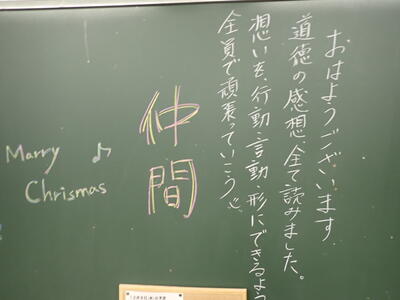 おはようございます.
道徳の感想、全て読みました。
想いを、行動・言動・形にできるよう
全員で頑張っていこう
仲間
Marry
Chrismas